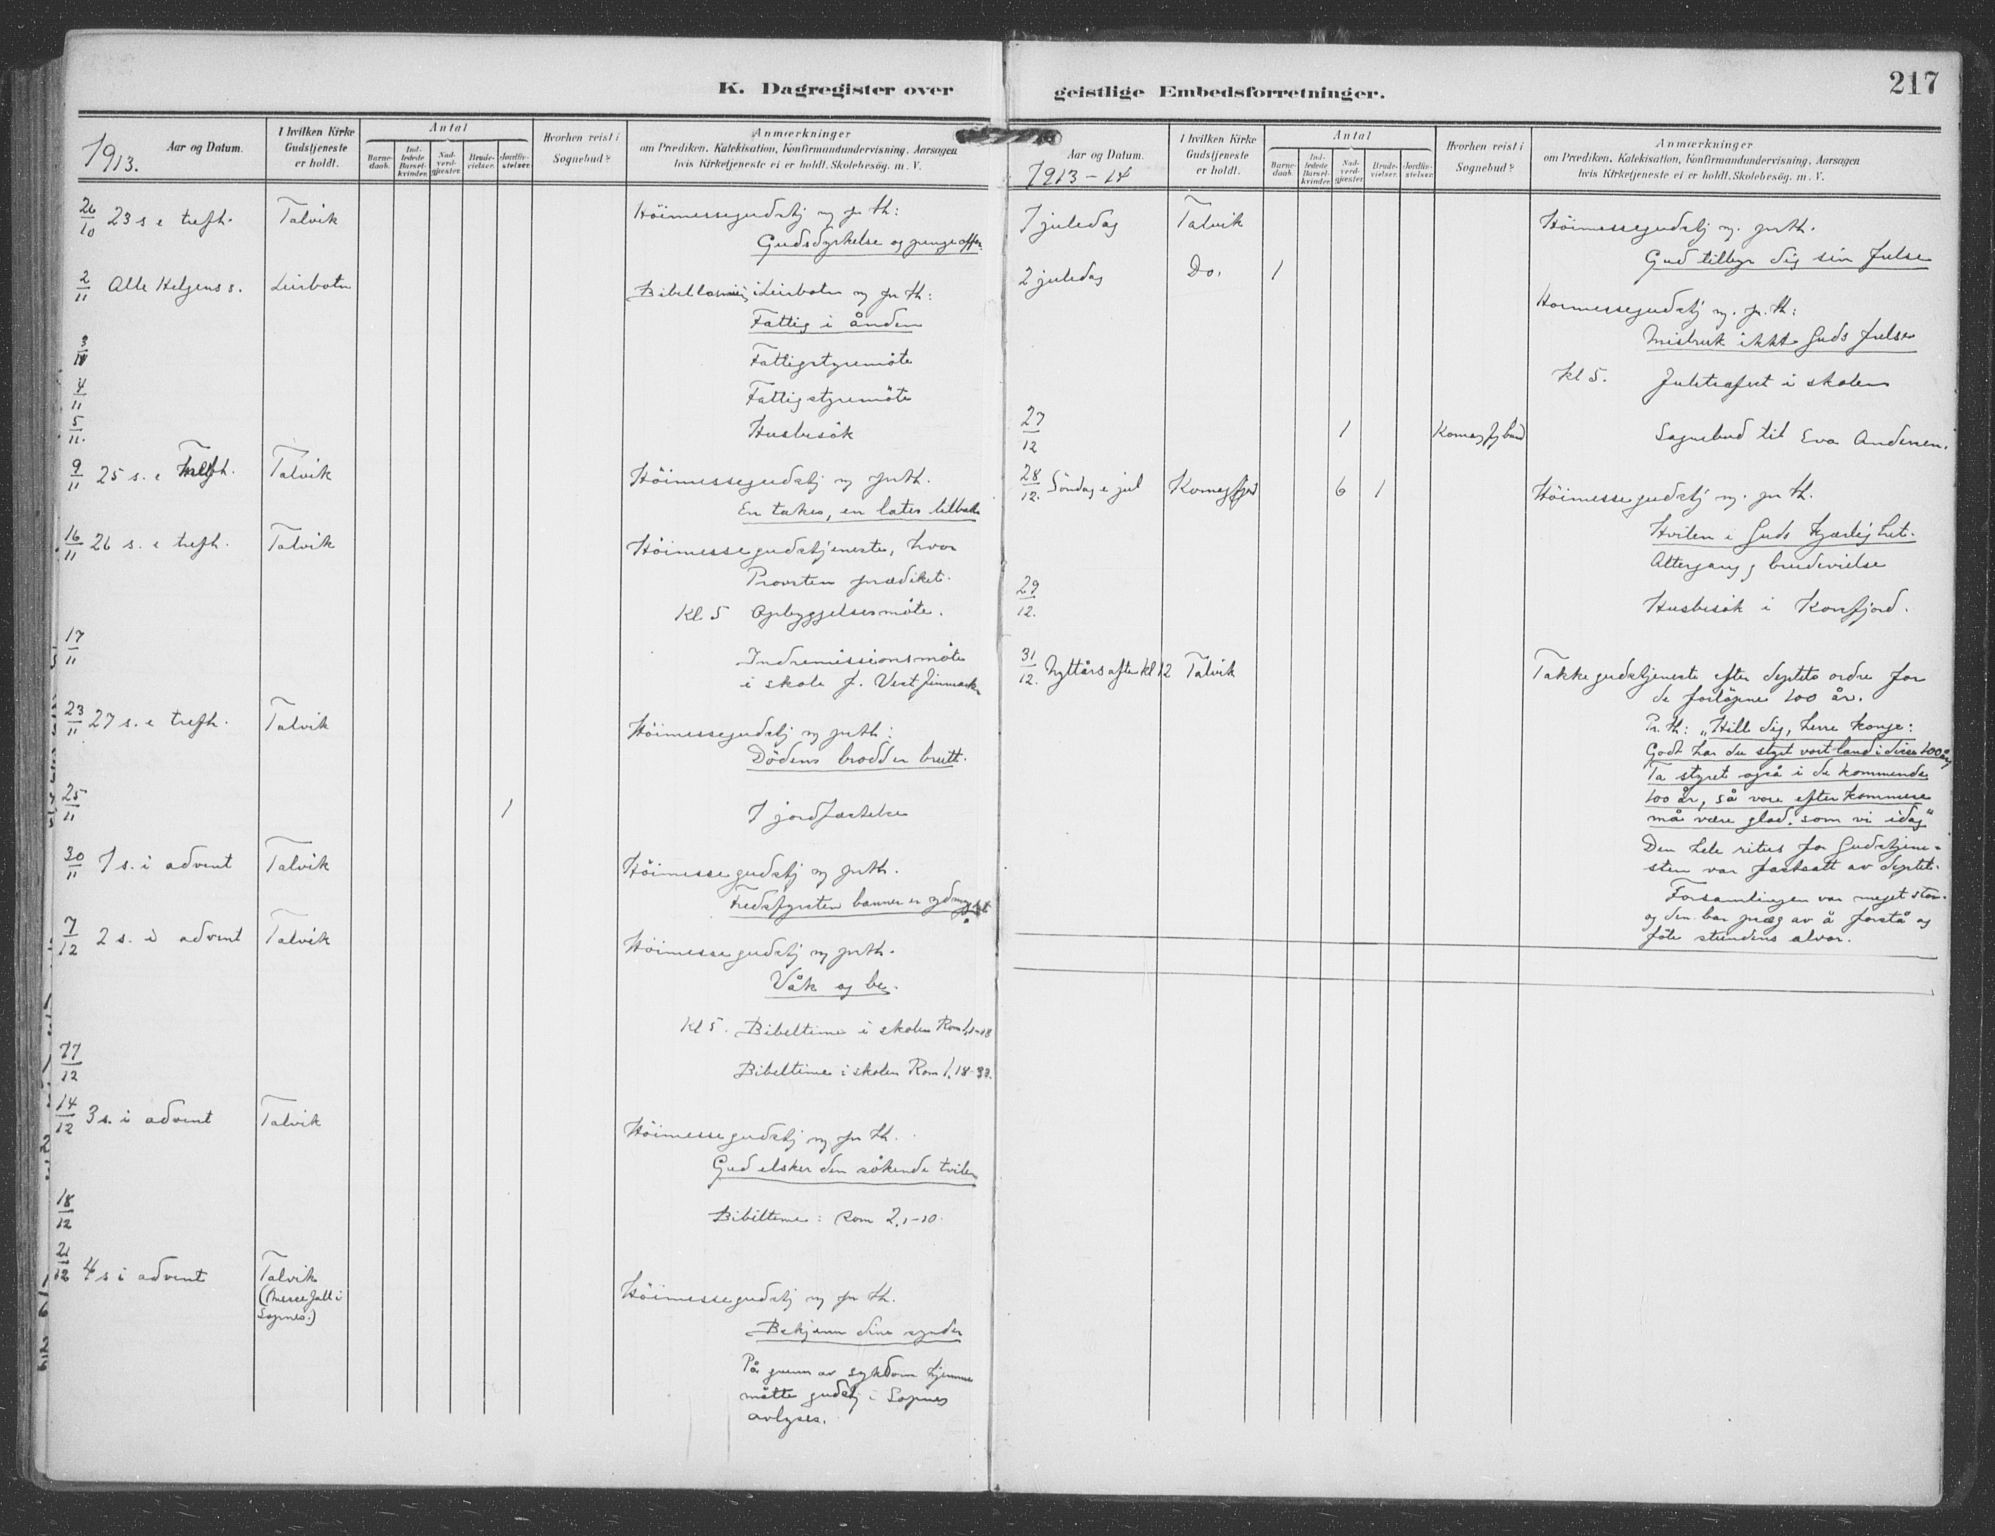 K. Dagregister over
1913.
Aar og Datum.
I hvilken Kirke Gudstjeneste er holdt.
Antal
Barnedaab.
Indledede Barselkvinder.
Nadverdgjæster.
Brudevielser.
Jordfæstelser.
Hvorhen reist i Sognebud?
Anmærkninger
om Prædiken, Katekisation, Konfirmandundervisning, Aarsagen
hvis Kirketjeneste ei er holdt, Skolebesøg. m. V.
26/10 23 s e trefh. Talvik Höimessegudstj og pr th:
Gudsdyrkelse og pengeoffer
2/11 Alle Helgens s. Leirbotn i Leirbotn og pr th:
Fattig i ånden
3/11 Fattigstyremöte
4/11 Fattigstyremöte
5/11. Husbesök
9/11 25 s. e Trefh. Talvik Höimessegudstj og pr th.
En takes, en lates tilbake
16/11 26 s. e trefh. Talvik Höimessegudstjeneste, hvor
Provsten prædiket.
Kl 5 Opbyggelsesmöte.
17/11 Indremissionsmöte
i skole f. Vestfinmarken
23/11 27 s. e trefh. Talvik Höimessegudstj og pr th:
Dödens brodd er brutt.
25/11 1 1 jordfæstelse
30/11 1 s. i advent Talvik Höimessegudstj og pr th.
Fredsfyrsten banner er ydmyghet
7/12 2 s. i advent Talvik Höimessegudstj og pr th.
Våk og be.
Kl 5. Bibeltime i skolen Rom 1,1-18
11/12 Bibeltime i skolen Rom 1,18-32.
14/12 3 s. i advent Talvik Höimessegudstj og pr th.
Gud elsker den sökende tviler
18/12 Bibeltime: Rom 2,1-10.
21/12 4 s i advent Talvik
(Messefall i
Sopnes.)
Höimessegudstj og pr th.
Bekjenn dine synder
På grunn av sykdom hjemme
måtte gudstj i Sopnes
avlyses.
geistlige Embedsforretninger.
217
1913-14
Aar og Datum.
I hvilken Kirke Gudstjeneste er holdt.
Antal
Barnedaab.
Indledede Barselkvinder.
Nadverdgjæster.
Brudevielser.
Jordfæstelser.
Hvorhen reist i Sognebud?
Anmærkninger
om Prædiken, Katekisation, Konfirmandundervisning, Aarsagen
hvis Kirketjeneste ei er holdt, Skolebesøg. m. V.
1 juledag Talvik Höimessegudstj og pr th.
Gud tilbyr dig sin frelse
2 juledag Do. 1 Hoimessegudstj og pr. th:
Misbruk ikke Guds frelse
Kl 5. Juletræfest i skolen
27/12 1 Sognebud til Eva Andersen.
28/12. Söndag i jul Komagfjord 6 1 Höimessegudstj og pr th.
Hvilen i Guds kjærlighet.
Altergang og brudevielse
29/12. Husbesök i Korsfjord.
31/12. Nyttårsaften kl 12 Talvik Takkegudstjeneste efter deptets ordre for
de forlöpne 100 år.
Pr. th: "Hill dig, Herre Konge:
Godt har du styrt vort land i disse 100 år
Ta styret også i de kommende
100 år, så vore efterkommere
må være glad, som vi idag"
Den hele ritus for Gudstjene-
sten var fastsatt av deptet.
Forsamlingen var meget stor
og den bar præg av å forstå og
föle stundens alvor.